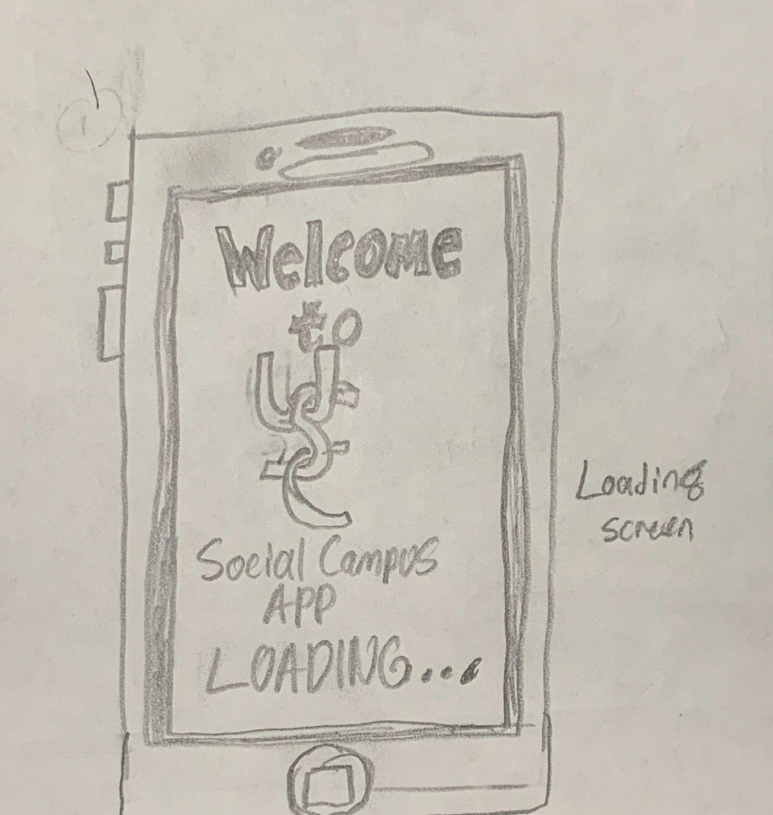 1
Welcome
to
USC
Social Campus
APP
LOADING...
Loading
screen